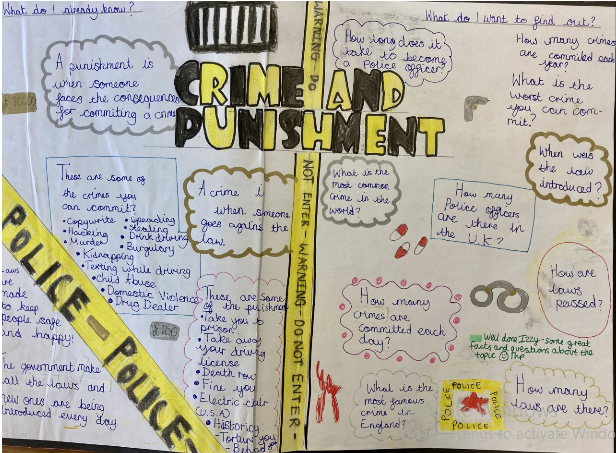 What do I already know?
A punishment is
when someone
faces the consequences
for commiting a crime
These are some of
the crimes you
can commit?
• Copywrite
• Hacking
• Murder
• Speeding
• Stealing
• Drink driving
• Burgulary
• Kidnapping
• Texting while driving
• Child Abuse
• Domestic Violence
• Drug Dealer
A crime i
when someone
goes agains the
law.
CRIME AND
PUNISHMENT
POLICE - POLICE-
aws
re
made
to keep
people safe
and happy!
The government make
all the laws and
new ones are being
introduced every day.
These are some
of the punishmen
• Take you to
prison
• Take away
your driving
license
• Death row
• Fine you
• Electric chair
(U.S.A)
• Historicy
- Tortur you
- Behead you
WARNING DO
NOT ENTER - WARNING - DO NOT ENTER -
What do I want to find out?
How long does it
take to become
a Police officer?
How many crimes
are commited each
you?
What is the
worst crime
you can com-
mit?
What is the
most common
crime in the
world?
How many
Police officers
are there in
the U.K?
When were
the law
introduced?
How are
laws
passed?
How many
crimes are
committed each
day?
Well done Izzy - some great
facts and questions about the
topic
What is the
most famous
crime in
England?
POLICE
POLICE
POLICE
POLICE
How many
laws are there?